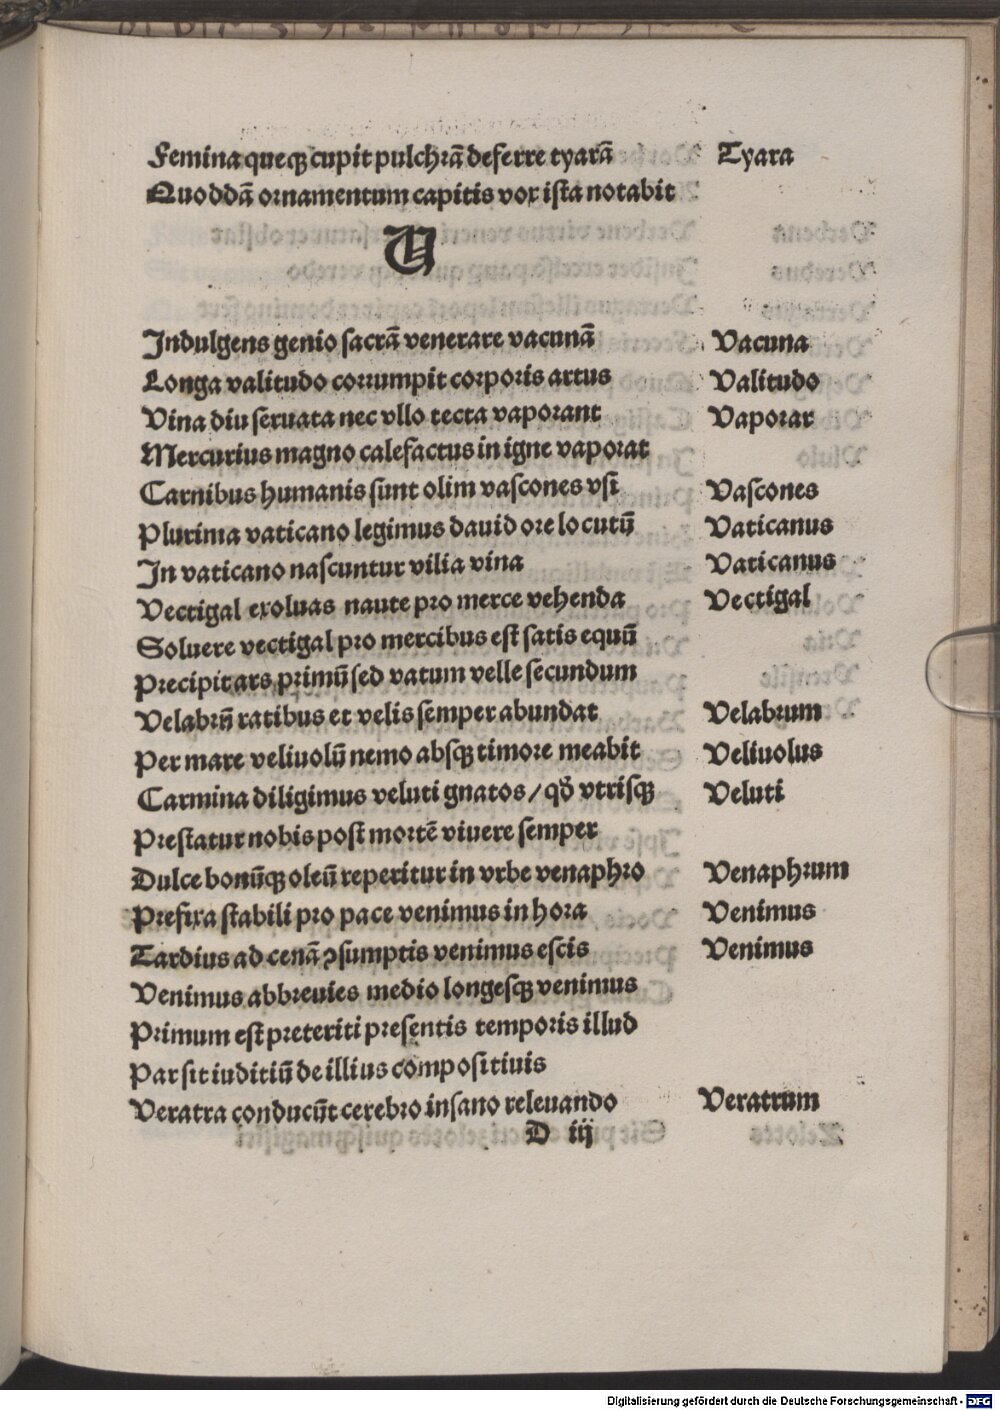 Femina queqꝫ cupit pulchrā deferre tyarā Tyara
Quoddā ornamentum capitis vox ista notabit
V
Indulgens genio sacrā venerare vacunā Vacuna
Longa valitudo corrumpit corporis artus Valitudo
Vina diu seruata nec vllo tecta vaporant Vaporar
Mercurius magno calefactus in igne vaporat
Carnibus humanis sunt olim vascones vsi Vascones
Plurima vaticano legimus dauid ore locutū Vaticanus
In vaticano nascuntur vilia vina Vaticanus
Vectigal exoluas naute pro merce vehenda Vectigal
Soluere vectigal pro mercibus est satis equū
Precipit ars primū sed vatum velle secundum
Velabrū ratibus et velis semper abundat Velabrum
Per mare veliuolū nemo absqꝫ timore meabit Veliuolus
Carmina diligimus veluti gnatos / qđ vtrisqꝫ Veluti
Prestatur nobis post mortē viuere semper
Dulce bonūqꝫ oleū reperitur in vrbe venaphro Venaphrum
Prefixa stabili pro pace venimus in hora Venimus
Tardius ad cenā ꝯsumptis venimus escis Venimus
Venimus abbreuies medio longesqꝫ venimus
Primum est preteriti presentis temporis illud
Par sit iuditiū de illius compositiuis
Veratra conducūt cerebro insano releuando Veratrum
D iij
Digitalisierung gefördert durch die Deutsche Forschungsgemeinschaft - DFG